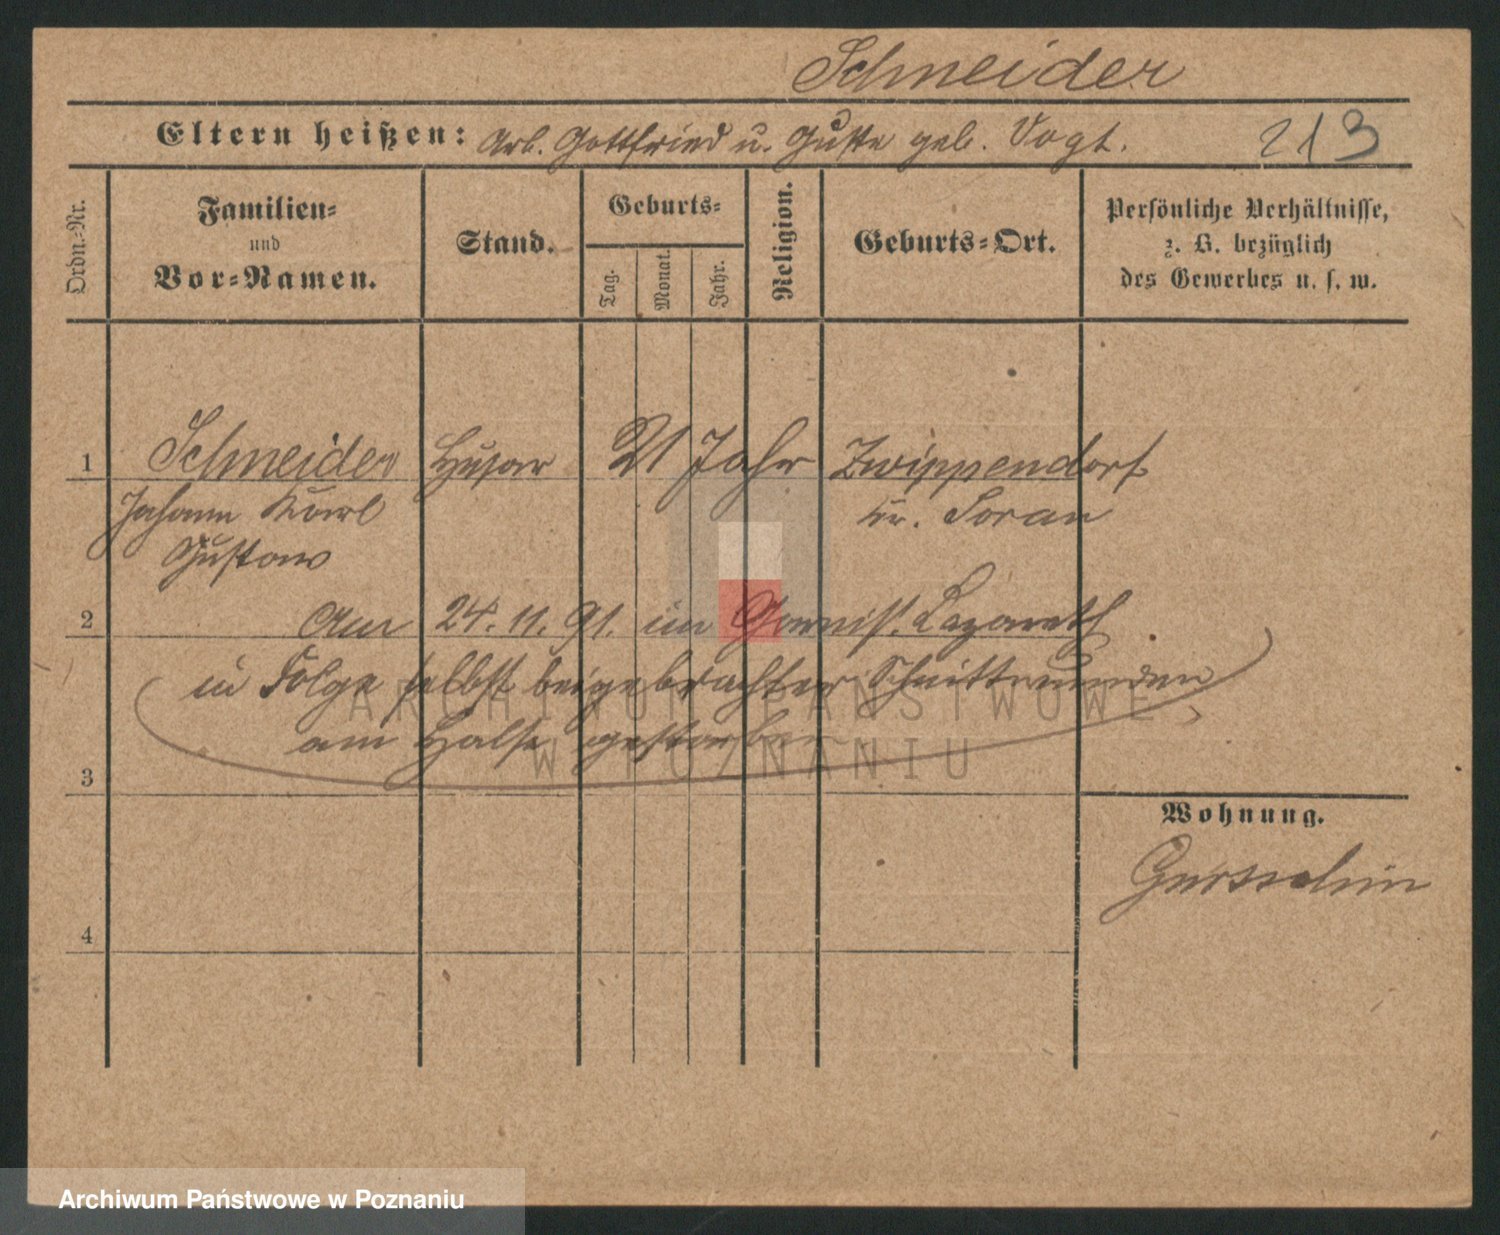 Schneider
Eltern heißen: Arb. Gottfried u. Guste geb. Vogt. 213
Ordn.-Nr.
Familien-
und
Vor-Namen.
Stand.
Geburts-
Tag.
Monat.
Jahr.
Religion.
Geburts-Ort.
Persönliche Verhältnisse,
z. B. bezüglich
des Gewerbes u. s. w.
1 Schneider Husar 21 Jahr Zwippendorf
Johann Karl Kr. Sorau
Gustav
2 Am 24. 11. 91. im Garnis. Lazareth
in Folge selbst beigebrachter Schnittwunden
am Halse gestorben
3
Wohnung.
4
ARCHIWUM PAŃSTWOWE
W POZNANIU
Archiwum Państwowe w Poznaniu